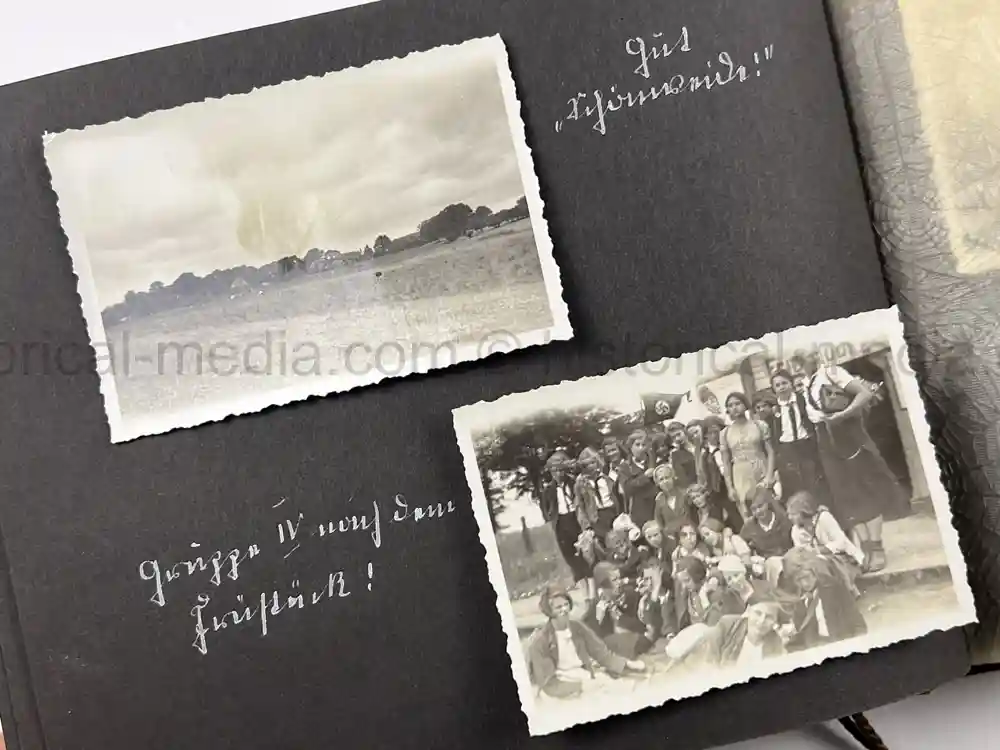 Gut
„Schönweide!"
Gruppe IV nach dem
Frühstück!
orical-media.com © historical-media